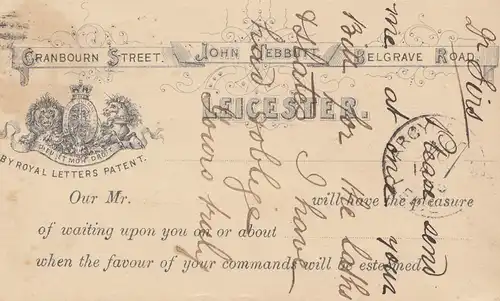 CRANBOURN STREET. JOHN TEBBUTT, BELGRAVE ROAD,
LEICESTER.
DIEU ET MON DROIT
BY ROYAL LETTERS PATENT.
Our Mr. will have the pleasure
of waiting upon you on or about
when the favour of your commands will be esteemed.
Sirs
Please send
me at once your
Bill for the laths
& slates I have
thus oblige
Yours truly